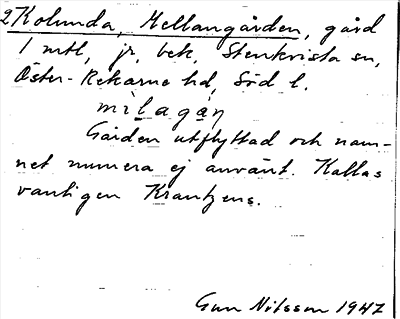 2 Kolunda, Mellangården, gård
1 mtl, jr, bek, Stenkvista sn,
Öster-Rekarne hd, Söd l.
mìlagàṇ
Gården utflyttad och nam-
net numera ej använt. Kallas
vanligen Krantzens.
Gun Nilsson 1947